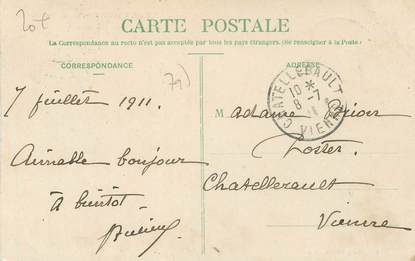 CARTE POSTALE
La Correspondance au recto n'est pas acceptée par tous les pays étrangers. (Se renseigner à la Poste.)
CORRESPONDANCE
ADRESSE
CHATELLERAULT
10 *
8 - 7
VIENNE
7 juillet 1911.
Aimable bonjour
à bientôt
Madame
Postes
Chatellerault
Vienne